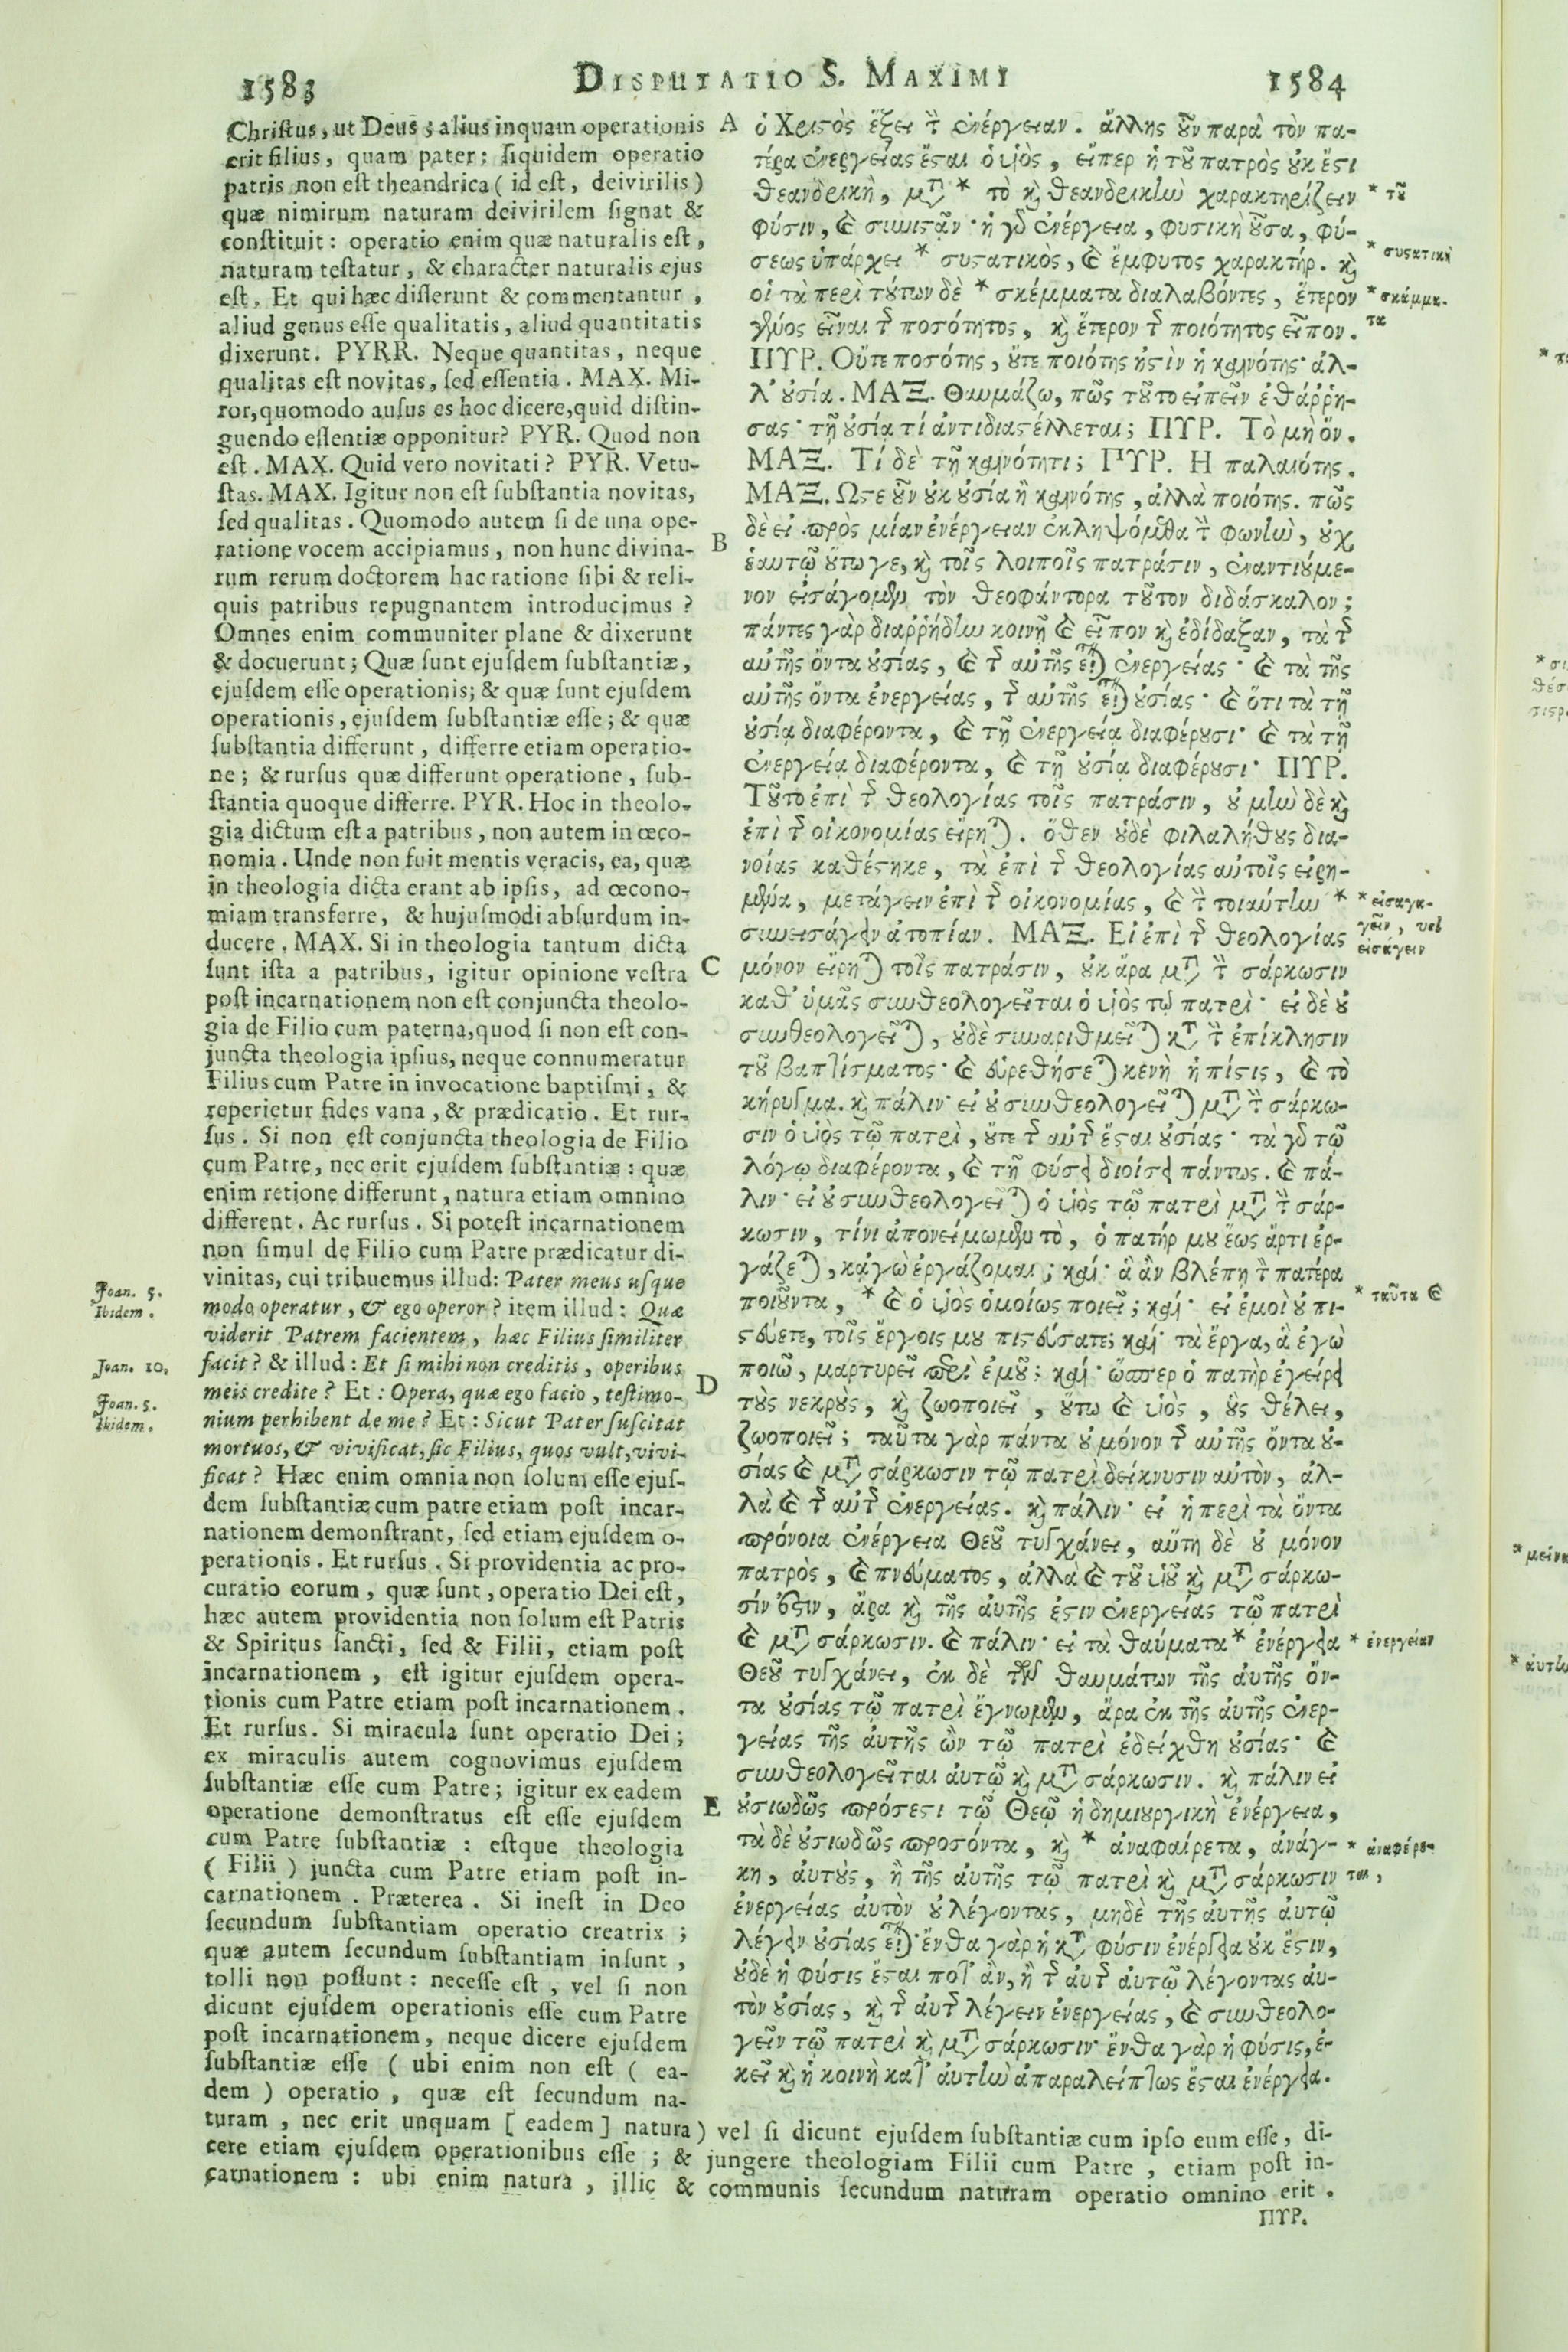 1583
DISPUTATIO S. MAXIMI
1584
Christus, ut Deus; alius inquam operationis
erit filius, quam pater: siquidem operatio
patris non est theandrica (id est, deivirilis)
quæ nimirum naturam deivirilem signat &
constituit: operatio enim quæ naturalis est,
naturam testatur, & character naturalis ejus
est. Et qui hæc disserunt & commentantur,
aliud genus esse qualitatis, aliud quantitatis
dixerunt. PYRR. Neque quantitas, neque
qualitas est novitas, sed essentia. MAX. Mi-
ror, quomodo ausus es hoc dicere, quid distin-
guendo essentiæ opponitur? PYR. Quod non
est. MAX. Quid vero novitati? PYR. Vetu-
stas. MAX. Igitur non est substantia novitas,
sed qualitas. Quomodo autem si de una ope-
ratione vocem accipiamus, non hunc divina-
rum rerum doctorem hac ratione sibi & reli-
quis patribus repugnantem introducimus?
Omnes enim communiter plane & dixerunt
& docuerunt; Quæ sunt ejusdem substantiæ,
ejusdem esse operationis; & quæ sunt ejusdem
operationis, ejusdem substantiæ esse; & quæ
substantia differunt, differre etiam operatio-
ne; & rursus quæ differunt operatione, sub-
stantia quoque differre. PYR. Hoc in theolo-
gia dictum est a patribus, non autem in œco-
nomia. Unde non fuit mentis veracis, ea, quæ
in theologia dicta erant ab ipsis, ad œcono-
miam transferre, & hujusmodi absurdum in-
ducere. MAX. Si in theologia tantum dicta
sunt ista a patribus, igitur opinione vestra
post incarnationem non est conjuncta theolo-
gia de Filio cum paterna, quod si non est con-
juncta theologia ipsius, neque connumeratur
Filius cum Patre in invocatione baptismi, &
reperietur fides vana, & prædicatio. Et rur-
sus. Si non est conjuncta theologia de Filio
cum Patre, nec erit ejusdem substantiæ: quæ
enim retione differunt, natura etiam omnino
different. Ac rursus. Si potest incarnationem
non simul de Filio cum Patre prædicatur di-
vinitas, cui tribuemus illud: Pater meus usque
modo operatur, & ego operor? item illud: Quæ
viderit Patrem facientem, hæc Filius similiter
facit? & illud: Et si mihi non creditis, operibus
meis credite? Et: Opera, quæ ego facio, testimo-
nium perhibent de me? Et: Sicut Pater suscitat
mortuos, & vivificat, sic Filius, quos vult, vivi-
ficat? Hæc enim omnia non solum esse ejus-
dem substantiæ cum patre etiam post incar-
nationem demonstrant, sed etiam ejusdem o-
perationis. Et rursus. Si providentia ac pro-
curatio eorum, quæ sunt, operatio Dei est,
hæc autem providentia non solum est Patris
& Spiritus sancti, sed & Filii, etiam post
incarnationem, est igitur ejusdem opera-
tionis cum Patre etiam post incarnationem.
Et rursus. Si miracula sunt operatio Dei;
ex miraculis autem cognovimus ejusdem
substantiæ esse cum Patre; igitur ex eadem
operatione demonstratus est esse ejusdem
cum Patre substantiæ: estque theologia
(Filii) juncta cum Patre etiam post in-
carnationem. Præterea. Si inest in Deo
secundum substantiam operatio creatrix;
quæ autem secundum substantiam insunt,
tolli non possunt: necesse est, vel si non
dicunt ejusdem operationis esse cum Patre
post incarnationem, neque dicere ejusdem
substantiæ esse (ubi enim non est (ea-
dem) operatio, quæ est secundum na-
turam, nec erit unquam [eadem] natura) vel si dicunt ejusdem substantiæ cum ipso eum esse, di-
cere etiam ejusdem operationibus esse; & jungere theologiam Filii cum Patre, etiam post in-
carnationem: ubi enim natura, illic & communis secundum naturam operatio omnino erit.
Joan. 5.
Ibidem.
Joan. 10.
Joan. 5.
Ibidem.
A
B
C
D
E
ὁ Χριστὸς ἕξει τὴν ἐνέργειαν. ἄλλης οὖν παρὰ τὸν πα-
τέρα ἐνεργείας ἔσται ὁ υἱὸς, εἴπερ ἡ τοῦ πατρὸς οὐκ ἔστι
θεανδρικὴ, μετὰ * τὸ καὶ θεανδρικὴν χαρακτηρίζειν
φύσιν, καὶ συνιστᾷν· ἡ γὰρ ἐνέργεια, φυσικὴ οὖσα, φύ-
σεως ὑπάρχει * συστατικὸς, καὶ ἔμφυτος χαρακτήρ. καὶ
οἱ τὰ περὶ τούτων δὲ * σκέμματα διαλαβόντες, ἕτερον
γένος εἶναι τῆς ποσότητος, καὶ ἕτερον τῆς ποιότητος εἶπον.
ΠΥΡ. Οὔτε ποσότης, οὔτε ποιότης ἐστὶν ἡ καινότης· ἀλ-
λ' οὐσία. ΜΑΞ. Θαυμάζω, πῶς τοῦτο εἰπεῖν ἐθάῤῥη-
σας· τῇ οὐσίᾳ τί ἀντιδιαστέλλεται; ΠΥΡ. Τὸ μὴ ὄν.
ΜΑΞ. Τί δὲ τῇ καινότητι; ΠΥΡ. Η παλαιότης.
ΜΑΞ. Ωστε οὖν οὐκ οὐσία ἢ καινότης, ἀλλὰ ποιότης. πῶς
δὲ εἰ πρὸς μίαν ἐνέργειαν ἐκληψόμεθα τὴν φωνὴν, οὐχ
ἑαυτῷ οὕτω γε, καὶ τοῖς λοιποῖς πατράσιν, ἐναντιούμε-
νον εἰσάγομεν τὸν θεοφάντορα τοῦτον διδάσκαλον;
πάντες γὰρ διαῤῥήδην κοινῇ καὶ εἶπον καὶ ἐδίδαξαν, τὰ τῆς
αὐτῆς ὄντα οὐσίας, καὶ τῆς αὐτῆς εἶναι ἐνεργείας· καὶ τὰ τῆς
αὐτῆς ὄντα ἐνεργείας, τῆς αὐτῆς εἶναι οὐσίας· καὶ ὅτι τὰ τῇ
οὐσίᾳ διαφέροντα, καὶ τῇ ἐνεργείᾳ διαφέρουσι· καὶ τὰ τῇ
ἐνεργείᾳ διαφέροντα, καὶ τῇ οὐσίᾳ διαφέρουσι· ΠΥΡ.
Τοῦτο ἐπὶ τῆς θεολογίας τοῖς πατράσιν, οὐ μὴν δὲ καὶ
ἐπὶ τῆς οἰκονομίας εἴρηται. ὅθεν οὐδὲ φιλαλήθους δια-
νοίας καθέστηκε, τὰ ἐπὶ τῆς θεολογίας αὐτοῖς εἰρη-
μένα, μετάγειν ἐπὶ τῆς οἰκονομίας, καὶ τὴν τοιαύτην *
συνεισάγειν ἀτοπίαν. ΜΑΞ. Εἰ ἐπὶ τῆς θεολογίας
μόνον εἴρηται τοῖς πατράσιν, οὐκ ἄρα μετὰ τὴν σάρκωσιν
καθ' ὑμᾶς συνθεολογεῖται ὁ υἱὸς τῷ πατρί· εἰ δὲ οὐ
συνθεολογεῖται, οὐδὲ συναριθμεῖται κατὰ τὴν ἐπίκλησιν
τοῦ βαπτίσματος· καὶ εὑρεθήσεται κενὴ ἡ πίστις, καὶ τὸ
κήρυγμα. καὶ πάλιν· εἰ οὐ συνθεολογεῖται μετὰ τὴν σάρκω-
σιν ὁ υἱὸς τῷ πατρὶ, οὔτε τῆς αὐτῆς ἔσται οὐσίας· τὰ γὰρ τῷ
λόγῳ διαφέροντα, καὶ τῇ φύσει διοίσει πάντως. καὶ πά-
λιν· εἰ οὐ συνθεολογεῖται ὁ υἱὸς τῷ πατρὶ μετὰ τὴν σάρ-
κωσιν, τίνι ἀπονείμωμεν τὸ, ὁ πατήρ μου ἕως ἄρτι ἐρ-
γάζεται, κἀγὼ ἐργάζομαι; καί· ἃ ἂν βλέπῃ τὸν πατέρα
ποιοῦντα, * καὶ ὁ υἱὸς ὁμοίως ποιεῖ; καί· εἰ ἐμοὶ οὐ πι-
στεύετε, τοῖς ἔργοις μου πιστεύσατε; καί· τὰ ἔργα, ἃ ἐγὼ
ποιῶ, μαρτυρεῖ περὶ ἐμοῦ; καί· ὥσπερ ὁ πατὴρ ἐγείρει
τοὺς νεκροὺς, καὶ ζωοποιεῖ, οὕτω καὶ υἱὸς, οὓς θέλει,
ζωοποιεῖ; ταῦτα γὰρ πάντα οὐ μόνον τῆς αὐτῆς ὄντα οὐ-
σίας καὶ μετὰ σάρκωσιν τῷ πατρὶ δείκνυσιν αὐτὸν, ἀλ-
λὰ καὶ τῆς αὐτῆς ἐνεργείας. καὶ πάλιν· εἰ ἡ περὶ τὰ ὄντα
πρόνοια ἐνέργεια Θεοῦ τυγχάνει, αὕτη δὲ οὐ μόνον
πατρὸς, καὶ πνεύματος, ἀλλὰ καὶ τοῦ υἱοῦ καὶ μετὰ σάρκω-
σίν ἐστιν, ἄρα καὶ τῆς αὐτῆς ἐστιν ἐνεργείας τῷ πατρὶ
καὶ μετὰ σάρκωσιν. καὶ πάλιν· εἰ τὰ θαύματα * ἐνέργεια
Θεοῦ τυγχάνει, ἐκ δὲ τῶν θαυμάτων τῆς αὐτῆς ὄν-
τα οὐσίας τῷ πατρὶ ἔγνωμεν, ἄρα ἐκ τῆς αὐτῆς ἐνερ-
γείας τῆς αὐτῆς ὢν τῷ πατρὶ ἐδείχθη οὐσίας· καὶ
συνθεολογεῖται αὐτῷ καὶ μετὰ σάρκωσιν. καὶ πάλιν εἰ
οὐσιωδῶς πρόσεστι τῷ Θεῷ ἡ δημιουργικὴ ἐνέργεια,
τὰ δὲ οὐσιωδῶς προσόντα, καὶ * ἀναφαίρετα, ἀνάγ-
κη, αὐτοὺς, ἢ τῆς αὐτῆς τῷ πατρὶ καὶ μετὰ σάρκωσιν
ἐνεργείας αὐτὸν οὐ λέγοντας, μηδὲ τῆς αὐτῆς αὐτῷ
λέγειν οὐσίας εἶναι· ἔνθα γὰρ ἡ κατὰ φύσιν ἐνέργεια οὐκ ἔστιν,
οὐδὲ ἡ φύσις ἔσται ποτ' ἂν, ἢ τῆς αὐτῆς αὐτῷ λέγοντας αὐ-
τὸν οὐσίας, καὶ τῆς αὐτῆς λέγειν ἐνεργείας, καὶ συνθεολο-
γεῖν τῷ πατρὶ καὶ μετὰ σάρκωσιν· ἔνθα γὰρ ἡ φύσις, ἐ-
κεῖ καὶ ἡ κοινὴ κατ' αὐτὴν ἀπαραλείπτως ἔσται ἐνέργεια.
* τοῦ
* συστατικὴ
* σκάμμα-
τα
* εἰσαγα-
γεῖν, vel
εἰσάγειν
* ταῦτα καὶ
* ἐνεργείαι
* ἀναφέρε-
ται,
ΠΥΡ.